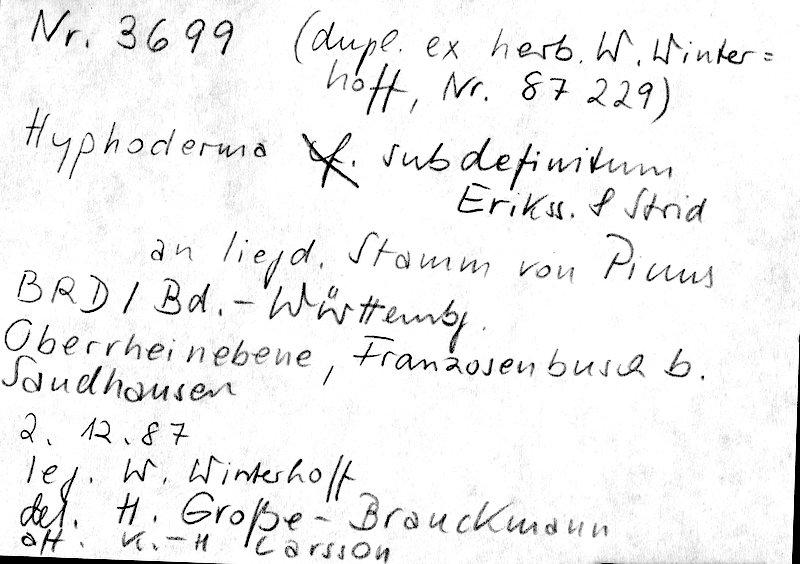 Nr. 3699 (dupl. ex herb. W. Winter=
hoff, Nr. 87 229)
Hyphoderma cf. subdefinitum
Erikss. & Strid
an liegd. Stamm von Pinus
BRD / Bd.-Württembg.
Oberrheinebene, Franzosenbusch b.
Sandhausen
2. 12. 87
leg. W. Winterhoff
det. H. Große-Brauckmann
aff. K.-H Larsson